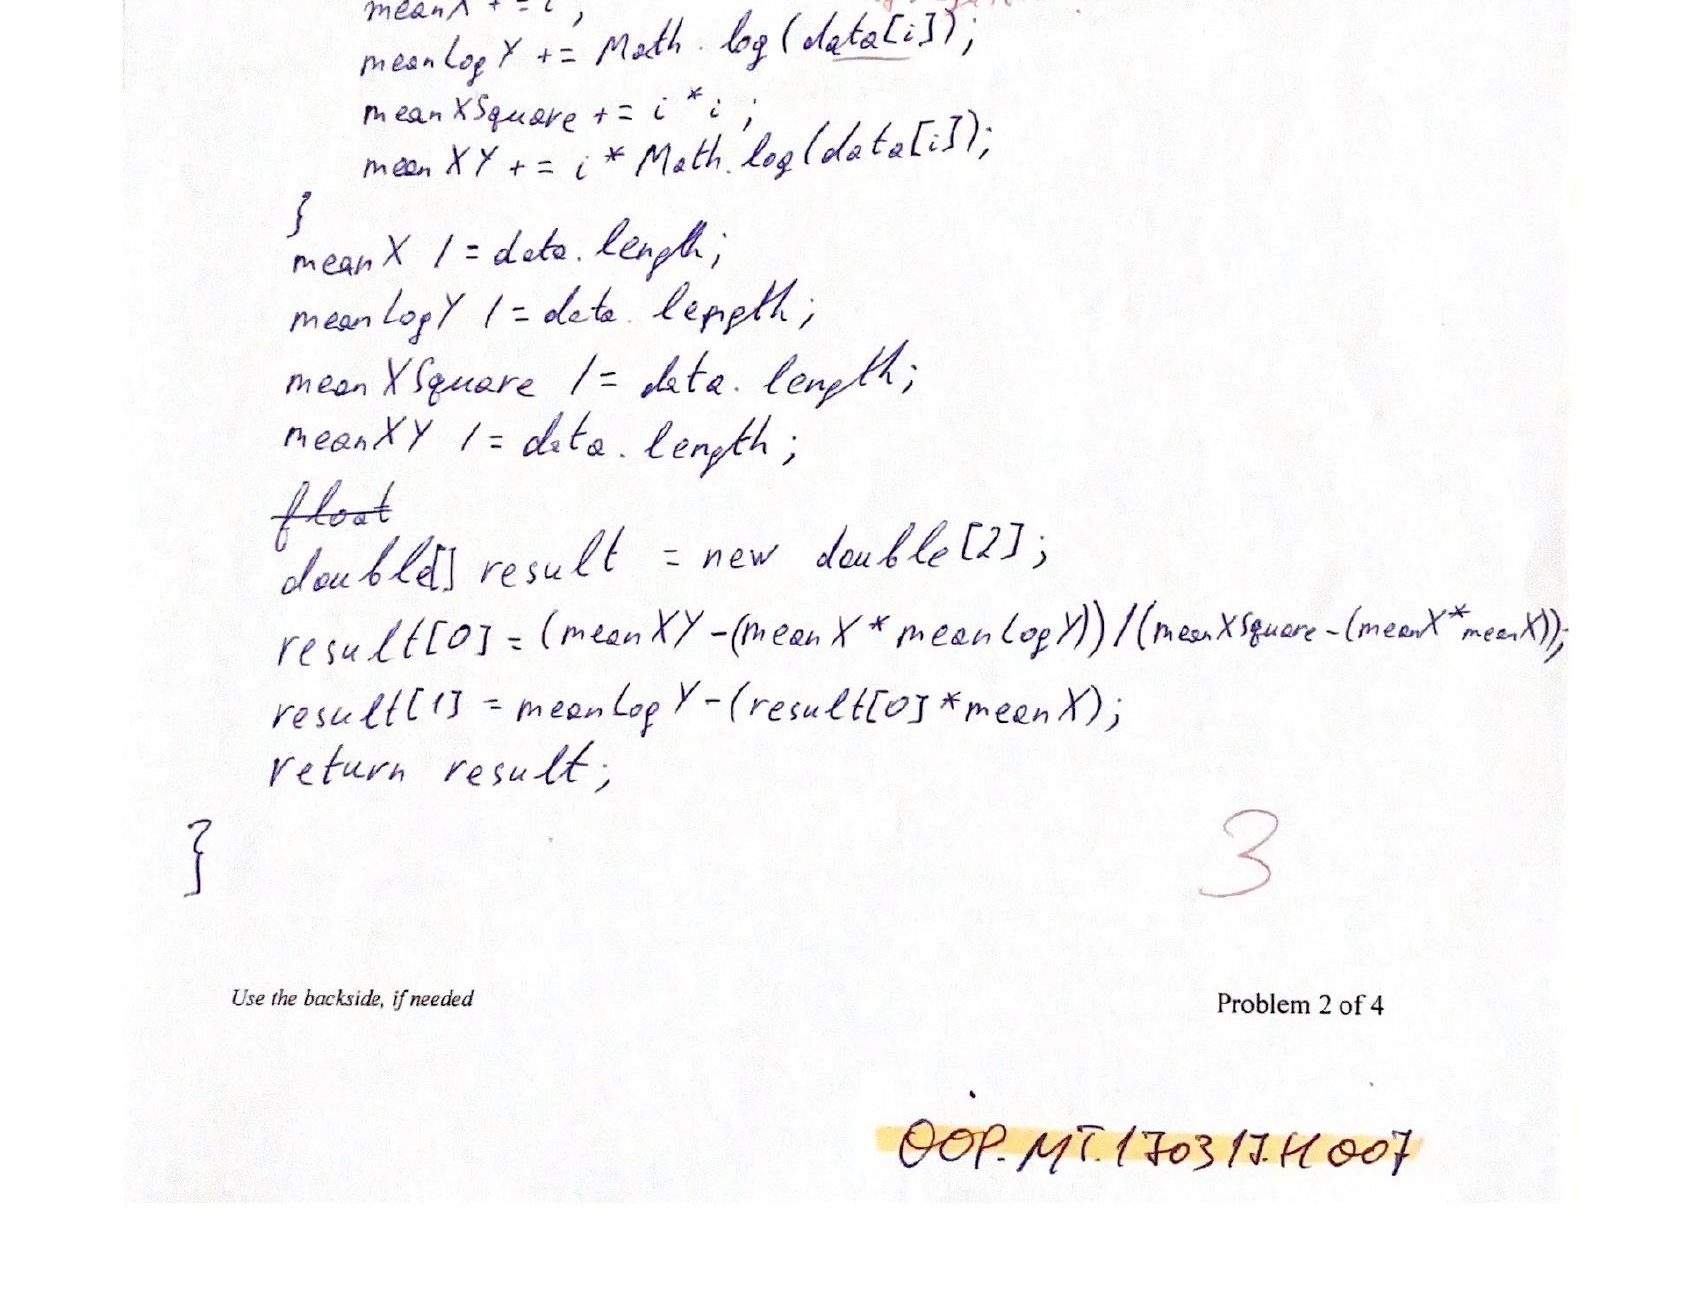 meanX += i;
meanLogY += Math.log(data[i]);
meanXSquare += i*i;
meanXY += i*Math.log(data[i]);
}
meanX /= data.length;
meanLogY /= data.length;
meanXSquare /= data.length;
meanXY /= data.length;
float
double[] result = new double[2];
result[0] = (meanXY-(meanX*meanLogY))/(meanXSquare-(meanX*meanX));
result[1] = meanLogY-(result[0]*meanX);
return result;
}
3
Use the backside, if needed
Problem 2 of 4
OOP.MT.170317.H007